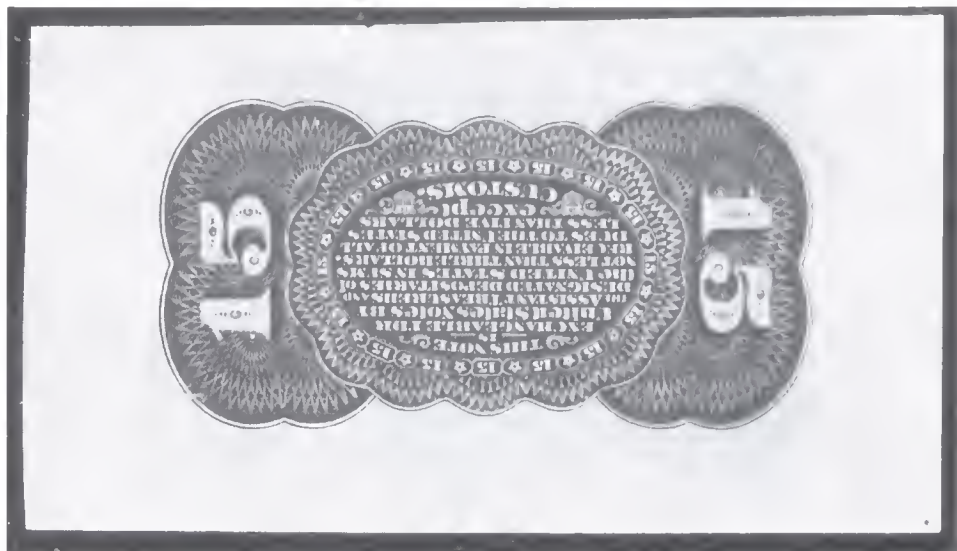 THIS NOTE
IS
EXCHANGEABLE FOR
United States Notes BY
the ASSISTANT TREASURERS AND
DESIGNATED DEPOSITARIES OF
the UNITED STATES IN SUMS
NOT LESS THAN THREE DOLLARS.
RECEIVABLE IN PAYMENT OF ALL
DUES TO THE UNITED STATES
LESS THAN FIVE DOLLARS
except
CUSTOMS.
15
15